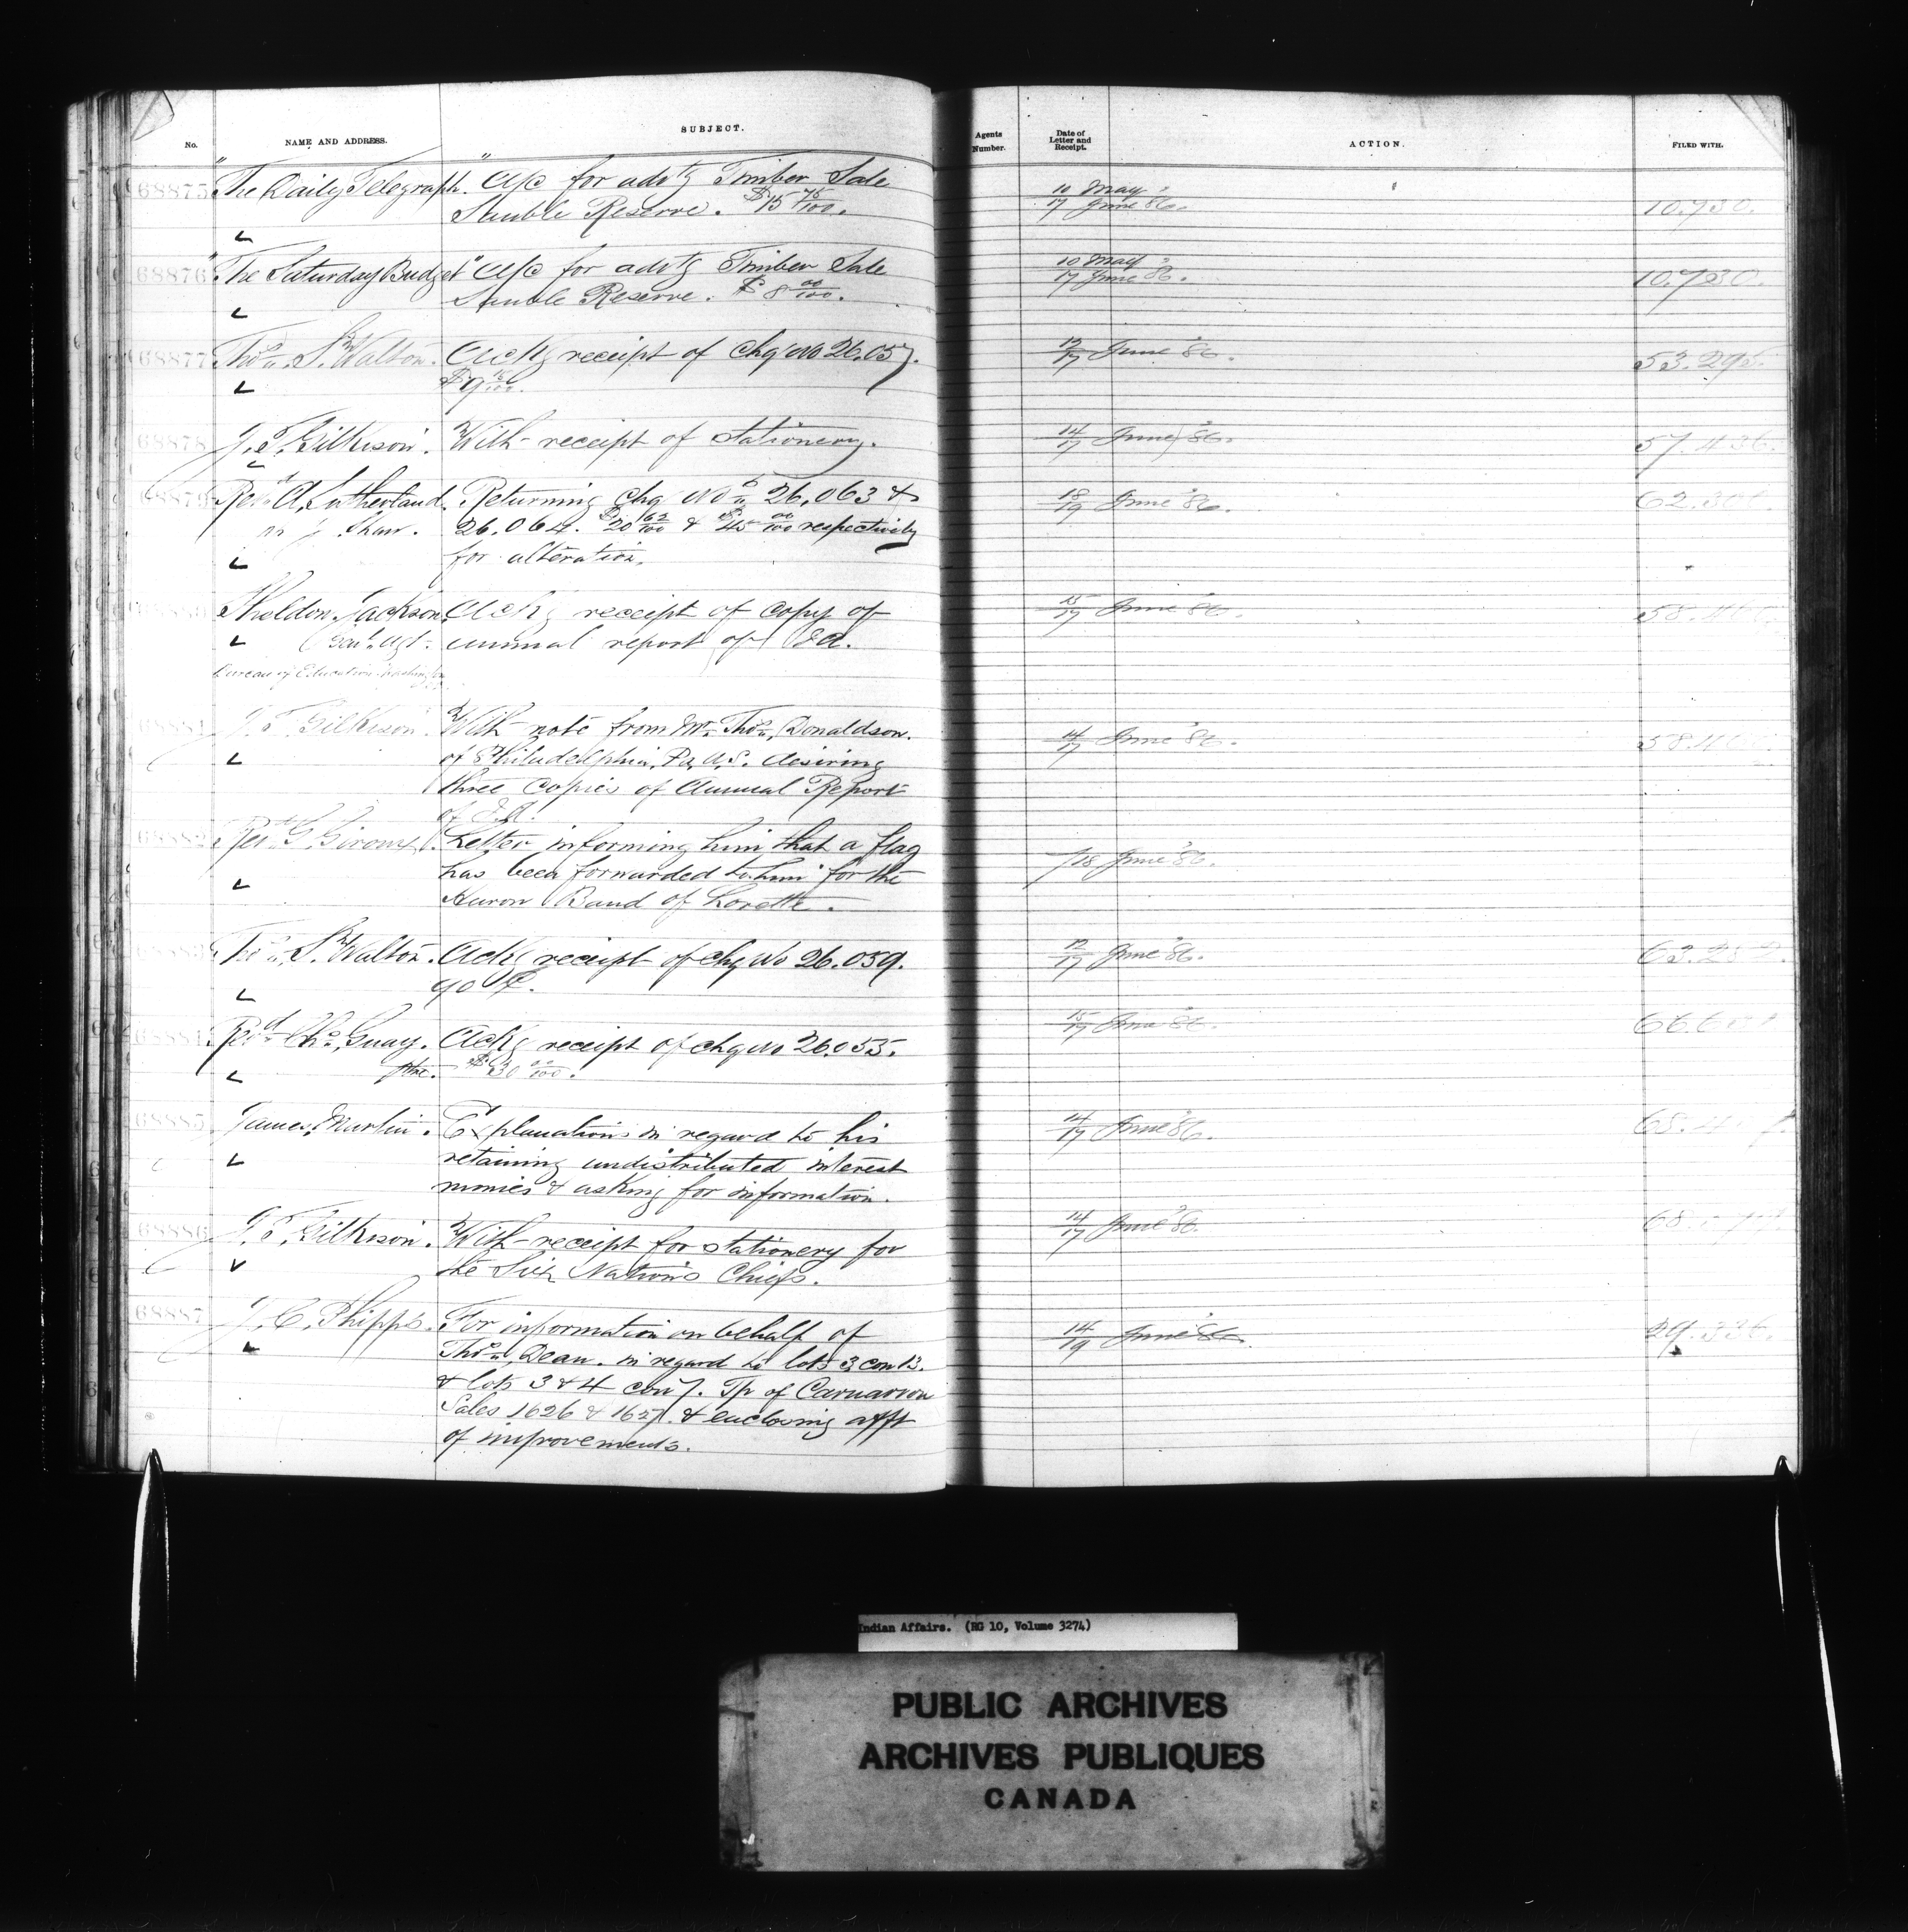 No. NAME AND ADDRESS. SUBJECT. Agents Number. Date of Letter and Receipt. ACTION. FILED WITH.
68875 "The Daily Telegraph." A/c for advtg Timber Sale 10 May
Sauble Reserve. $15 75/100. 17 June 86. 10.730.
68876 "The Saturday Budget" A/c for advtg Timber Sale 10 May
Sauble Reserve. $8 00/100. 17 June 86. 10.730.
68877 Thos. S. Walton. Ackg receipt of chq No 26.057. 12/17 June '86. 53.295.
$9 15/100.
68878 J. T. Gilkison. With receipt of stationery. 14/17 June '86. 57.436.
68879 Revd. A. Sutherland. Returning chq Nos. 26,063 & 18/19 June '86.
Shaw. 26.064. $20 62/100 & $45 00/100 respectively
for alteration.
Sheldon Jackson Ackg receipt of copy of 15/17 June '86.
Genl. Agt. annual report of I.A.
Bureau of Education Washington
68881 J. T. Gilkison. With note from Mr. Thos. Donaldson. 14/17 June '86.
of Philadelphia, Pa, U.S. desiring
three copies of Annual Report
of I.A.
68882 Revd. G. Giroux. Letter informing him that a flag
has been forwarded to him for the 7/18 June '86.
Huron Band of Lorette.
Thos. S. Walton. Ackg receipt of chq No 26.059. 12/17 June '86.
90 ¢.
68884 Revd. Chs. Guay. Ackg receipt of chq No 26.055. 15/17 June '86.
Ptre. $30 00/100.
68885 James Martin. Explanations in regard to his 14/17 June '86.
retaining undistributed interest
monies & asking for information.
68886 J. T. Gilkison. With receipt for stationery for 14/17 June '86.
the Six Nations Chiefs.
68887 J. C. Phipps. For information on behalf of 14/19 June '86. 29.336.
Thos. Dean. in regard to lots 3 con 13.
& lots 3 & 4 con 7. Tp of Carnarvon
Sales 1626 & 1627. & enclosing afft
of improvements.
Indian Affairs. (RG 10, Volume 3274)
PUBLIC ARCHIVES
ARCHIVES PUBLIQUES
CANADA